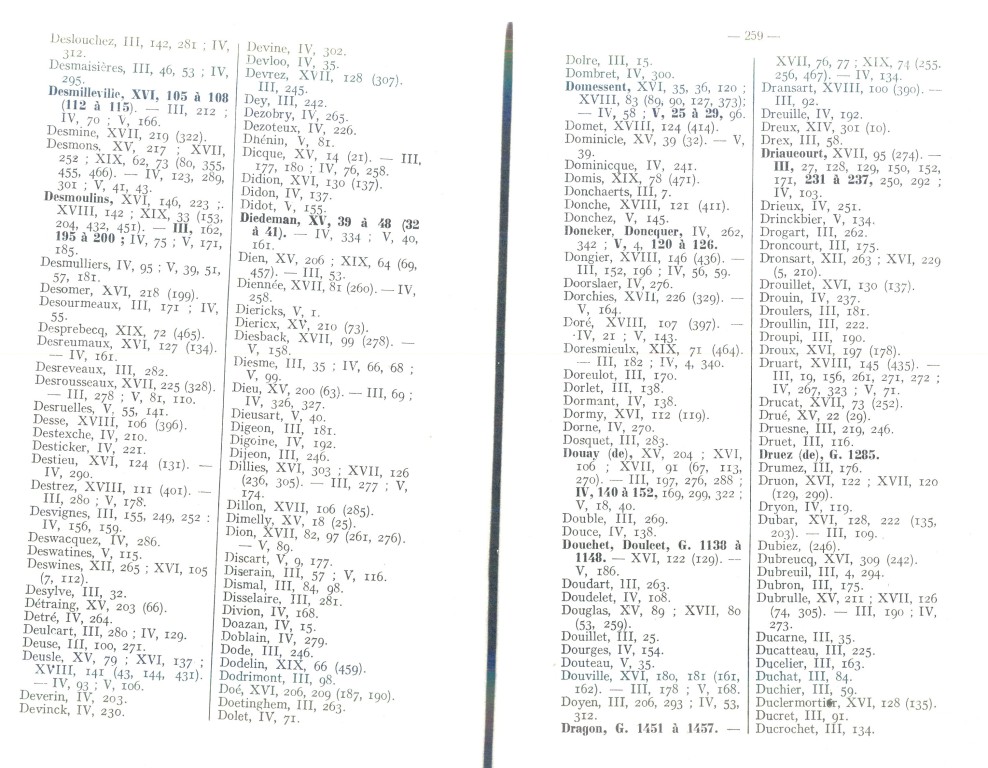 Deslouchez, III, 142, 281 ; IV,
312.
Desmaisières, III, 46, 53 ; IV,
295.
Desmilleville, XVI, 105 à 108
(112 à 115). — III, 212 ;
IV, 70 ; V, 166.
Desmine, XVII, 219 (322).
Desmons, XV, 217 ; XVII,
252 ; XIX, 62, 73 (80, 355,
455, 466). — IV, 123, 289,
301 ; V, 41, 43.
Desmoulins, XVI, 146, 223 ;
XVIII, 142 ; XIX, 33 (153,
204, 432, 451). — III, 162,
195 à 200 ; IV, 75 ; V, 171,
185.
Desmulliers, IV, 95 ; V, 39, 51,
57, 181.
Desomer, XVI, 218 (199).
Desourmeaux, III, 171 ; IV,
55.
Desprebecq, XIX, 72 (465).
Desreumaux, XVI, 127 (134).
— IV, 161.
Desreveaux, III, 282.
Desrousseaux, XVII, 225 (328).
— III, 278 ; V, 81, 110.
Desruelles, V, 55, 141.
Desse, XVIII, 106 (396).
Destexche, IV, 210.
Desticker, IV, 221.
Destieu, XVI, 124 (131). —
IV, 290.
Destrez, XVIII, 111 (401). —
III, 280 ; V, 178.
Desvignes, III, 155, 249, 252 :
IV, 156, 159.
Deswacquez, IV, 286.
Deswatines, V, 115.
Deswines, XII, 265 ; XVI, 105
(7, 112).
Desylve, III, 32.
Détraing, XV, 203 (66).
Detré, IV, 264.
Deulcart, III, 280 ; IV, 129.
Deuse, III, 100, 271.
Deusle, XV, 79 ; XVI, 137 ;
XVIII, 141 (43, 144, 431).
— IV, 93 ; V, 106.
Deverin, IV, 203.
Devinck, IV, 230.
Devine, IV, 302.
Devloo, IV, 35.
Devrez, XVII, 128 (307). —
III, 245.
Dey, III, 242.
Dezobry, IV, 265.
Dezoteux, IV, 226.
Dhénin, V, 81.
Dicque, XV, 14 (21). — III,
177, 180 ; IV, 76, 258.
Didion, XVI, 130 (137).
Didon, IV, 137.
Didot, V, 155.
Diedeman, XV, 39 à 48 (32
à 41). — IV, 334 ; V, 40,
161.
Dien, XV, 206 ; XIX, 64 (69,
457). — III, 53.
Diennée, XVII, 81 (260). — IV,
258.
Diericks, V, 1.
Diericx, XV, 210 (73).
Diesback, XVII, 99 (278). —
V, 158.
Diesme, III, 35 ; IV, 66, 68 ;
V, 99.
Dieu, XV, 200 (63). — III, 69 ;
IV, 326, 327.
Dieusart, V, 40.
Digeon, III, 181.
Digoine, IV, 192.
Dijeon, III, 246.
Dillies, XVI, 303 ; XVII, 126
(236, 305). — III, 277 ; V,
174.
Dillon, XVII, 106 (285).
Dimelly, XV, 18 (25).
Dion, XVII, 82, 97 (261, 276).
— V, 89.
Discart, V, 9, 177.
Diserain, III, 57 ; V, 116.
Dismal, III, 84, 98.
Disselaire, III, 281.
Divion, IV, 168.
Doazan, IV, 15.
Doblain, IV, 279.
Dode, III, 246.
Dodelin, XIX, 66 (459).
Dodrimont, III, 98.
Doé, XVI, 206, 209 (187, 190).
Doetinghem, III, 263.
Dolet, IV, 71.
— 259 —
Dolre, III, 15.
Dombret, IV, 300.
Domessent, XVI, 35, 36, 120 ;
XVIII, 83 (89, 90, 127, 373);
— IV, 58 ; V, 25 à 29, 96.
Domet, XVIII, 124 (414).
Dominicle, XV, 39 (32). — V,
39.
Dominicque, IV, 241.
Domis, XIX, 78 (471).
Donchaerts, III, 7.
Donche, XVIII, 121 (411).
Donchez, V, 145.
Doneker, Donequer, IV, 262,
342 ; V, 4, 120 à 126.
Dongier, XVIII, 146 (436). —
III, 152, 196 ; IV, 56, 59.
Doorslaer, IV, 276.
Dorchies, XVII, 226 (329). —
V, 164.
Doré, XVIII, 107 (397). —
IV, 21 ; V, 143.
Doresmieulx, XIX, 71 (464).
— III, 182 ; IV, 4, 340.
Doreulot, III, 170.
Dorlet, III, 138.
Dormant, IV, 138.
Dormy, XVI, 112 (119).
Dorne, IV, 270.
Dosquet, III, 283.
Douay (de), XV, 204 ; XVI,
106 ; XVII, 91 (67, 113,
270). — III, 197, 276, 288 ;
IV, 140 à 152, 169, 299, 322 ;
V, 18, 40.
Double, III, 269.
Douce, IV, 138.
Douchet, Doulcet, G. 1138 à
1148. — XVI, 122 (129). —
V, 186.
Doudart, III, 263.
Doudelet, IV, 108.
Douglas, XV, 89 ; XVII, 80
(53, 259).
Douillet, III, 25.
Dourges, IV, 154.
Douteau, V, 35.
Douville, XVI, 180, 181 (161,
162). — III, 178 ; V, 168.
Doyen, III, 206, 293 ; IV, 53,
312.
Dragon, G. 1451 à 1457. —
XVII, 76, 77 ; XIX, 74 (255,
256, 467). — IV, 134.
Dransart, XVIII, 100 (390). —
III, 92.
Dreuille, IV, 192.
Dreux, XIV, 301 (10).
Drex, III, 58.
Driaucourt, XVII, 95 (274). —
III, 27, 128, 129, 150, 152,
171, 231 à 237, 250, 292 ;
IV, 103.
Drieux, IV, 251.
Drinckbier, V, 134.
Drogart, III, 262.
Droncourt, III, 175.
Dronsart, XII, 263 ; XVI, 229
(5, 210).
Drouillet, XVI, 130 (137).
Drouin, IV, 237.
Droulers, III, 181.
Droullin, III, 222.
Droupi, III, 190.
Droux, XVI, 197 (178).
Druart, XVIII, 145 (435). —
III, 19, 156, 261, 271, 272 ;
IV, 267, 323 ; V, 71.
Drucat, XVII, 73 (252).
Drué, XV, 22 (29).
Druesne, III, 219, 246.
Druet, III, 116.
Druez (de), G. 1285.
Drumez, III, 176.
Druon, XVI, 122 ; XVII, 120
(129, 299).
Dryon, IV, 119.
Dubar, XVI, 128, 222 (135,
203). — III, 109.
Dubiez, (246).
Dubreucq, XVI, 309 (242).
Dubreuil, III, 4, 294.
Dubron, III, 175.
Dubrulle, XV, 211 ; XVII, 126
(74, 305). — III, 190 ; IV,
273.
Ducarne, III, 35.
Ducatteau, III, 225.
Ducelier, III, 163.
Duchat, III, 84.
Duchier, III, 59.
Duclermortier, XVI, 128 (135).
Ducret, III, 91.
Ducrochet, III, 134.